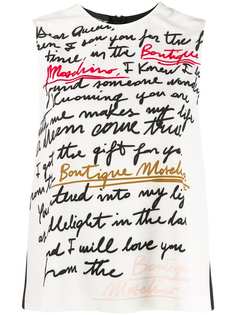 Dear Queen,
I saw you for the
time, in the Boutique
Moschino, I knew, I
found someone
Knowing you are
me makes my life
a dream come true!
I got the gift for you
Boutique Moschi
entered into my lig
as delight in the da
and I will love you
from the Boutique
Moschino